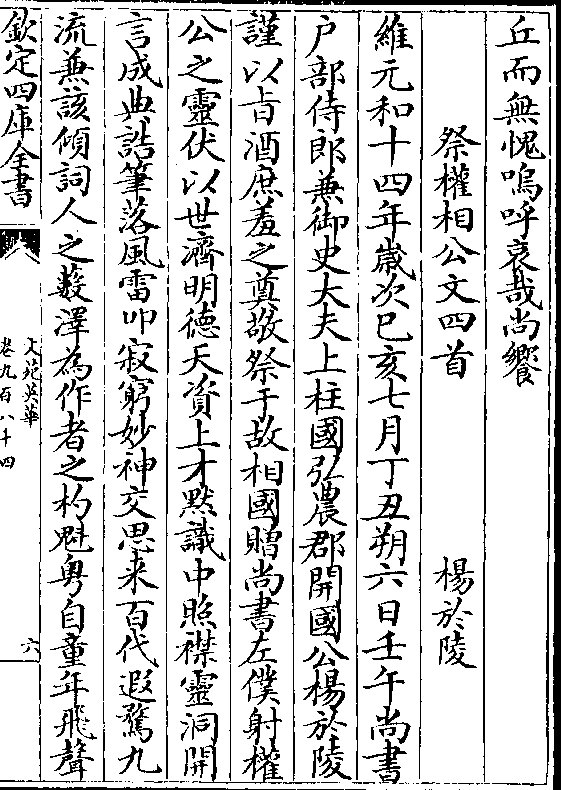 丘而無愧嗚呼哀哉尚饗
祭權相公文四首 楊於陵
維元和十四年歲次巳亥七月丁丑朔六日壬午尚書
户部侍郎兼御史大夫上柱國弘農郡開國公楊於陵
謹以旨酒庶羞之奠敬祭于故相國贈尚書左僕射權
公之靈伏以世濟明德天資上才黙識中照襟靈洞開
言成典誥筆落風雷叩寂窮妙神交思来百代遐騖九
流兼該傾詞人之藪澤為作者之杓魁粤自童年飛聲
欽定四庫全書
文苑英華
卷九百八十四
六